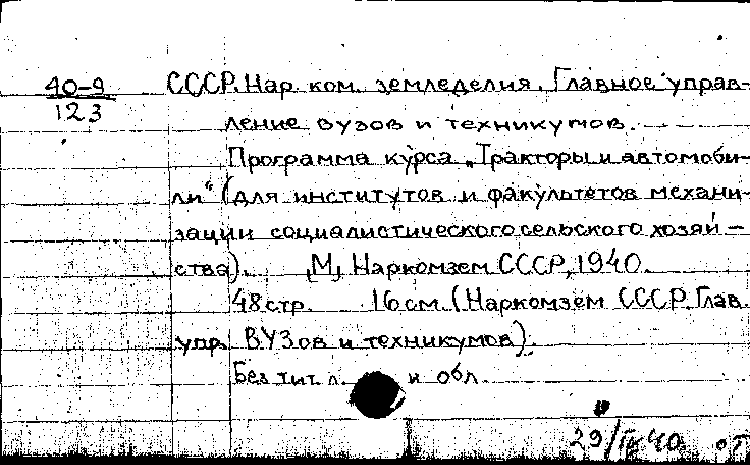 40-9
123
СССР. Нар. ком. земледелия. Главное управ-
ление вузов и техникумов.
Программа курса „Тракторы и автомоби-
ли" (для институтов и факультетов механи-
зации социалистического сельского хозяй-
ства). М, Наркомзем СССР, 1940.
48 стр. 16 см. (Наркомзем СССР. Глав.
упр. ВУЗов и техникумов).
Без тит. л. и обл.
29/IV 40